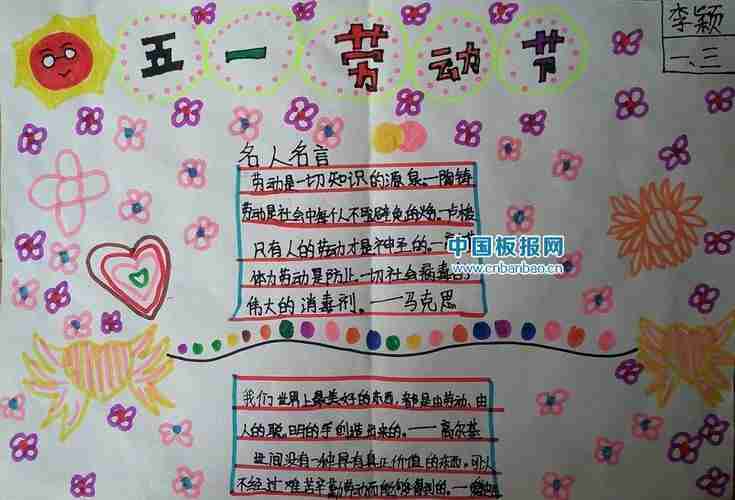 五一劳动节
李颖
一、三
名人名言
劳动是一切知识的源泉。—陶铸
劳动是社会中每个人不可避免的 卢梭
只有人的劳动才是神圣的。—
中国板报网
www.cnbanbao.cn
体力劳动是防止一切社会病毒的
伟大的消毒剂。——马克思
我们世界上最美好的东西，都是由劳动、由
人的聪明的手创造出来的。——高尔基
世间没有一种具有真正价值的东西，可以
不经过艰苦辛勤劳动而能够得到的。—